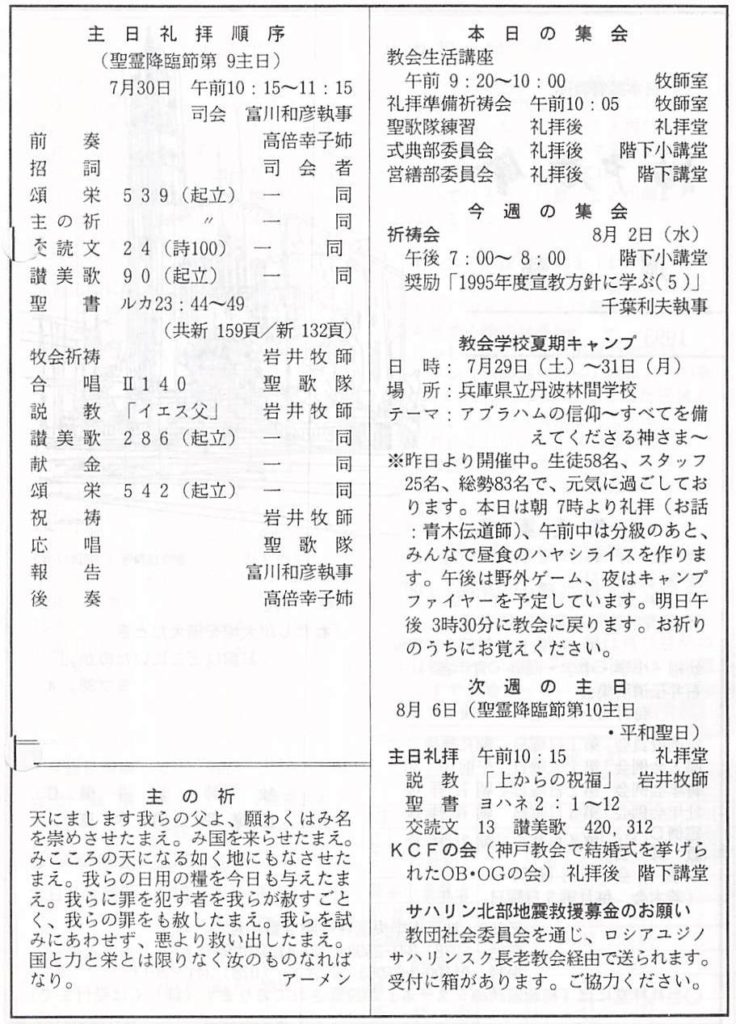 主日礼拝順序
(聖霊降臨節第 9主日)
7月30日 午前10:15〜11:15
司会 富川和彦執事
前奏 高倍幸子姉
招詞 司会者
頌栄 539(起立) 一同
主の祈 〃 一同
交読文 24(詩100) 一同
讃美歌 90(起立) 一同
聖書 ルカ23:44〜49
(共新 159頁/新 132頁)
牧会祈祷 岩井牧師
合唱 Ⅱ140 聖歌隊
説教 「イエス父」 岩井牧師
讃美歌 286(起立) 一同
献金 一同
頌栄 542(起立) 一同
祝祷 岩井牧師
応唱 聖歌隊
報告 富川和彦執事
後奏 高倍幸子姉
主の祈
天にまします我らの父よ、願わくはみ名
を崇めさせたまえ。み国を来らせたまえ。
みこころの天になる如く地にもなさせた
まえ。我らの日用の糧を今日も与えたま
え。我らに罪を犯す者を我らが赦すごと
く、我らの罪をも赦したまえ。我らを試
みにあわせず、悪より救い出したまえ。
国と力と栄とは限りなく汝のものなれば
なり。 アーメン
本日の集会
教会生活講座
午前 9:20〜10:00 牧師室
礼拝準備祈祷会 午前10:05 牧師室
聖歌隊練習 礼拝後 礼拝堂
式典部委員会 礼拝後 階下小講堂
営繕部委員会 礼拝後 階下講堂
今週の集会
祈祷会 8月 2日(水)
午後 7:00〜 8:00 階下小講堂
奨励「1995年度宣教方針に学ぶ(5)」
千葉利夫執事
教会学校夏期キャンプ
日 時:7月29日(土)〜31日(月)
場 所:兵庫県立丹波林間学校
テーマ:アブラハムの信仰〜すべてを備
えてくださる神さま〜
※昨日より開催中。生徒58名、スタッフ
25名、総勢83名で、元気に過ごしてお
ります。本日は朝 7時より礼拝(お話
:青木伝道師)、午前中は分級のあと、
みんなで昼食のハヤシライスを作りま
す。午後は野外ゲーム、夜はキャンプ
ファイヤーを予定しています。明日午
後 3時30分に教会に戻ります。お祈り
のうちにお覚えください。
次週の主日
8月 6日(聖霊降臨節第10主日
・平和聖日)
主日礼拝 午前10:15 礼拝堂
説教 「上からの祝福」 岩井牧師
聖書 ヨハネ2:1〜12
交読文 13 讃美歌 420, 312
KCFの会(神戸教会で結婚式を挙げら
れたOB・OGの会) 礼拝後 階下講堂
サハリン北部地震救援募金のお願い
教団社会委員会を通じ、ロシアユジノ
サハリンスク長老教会経由で送られます。
受付に箱があります。ご協力ください。